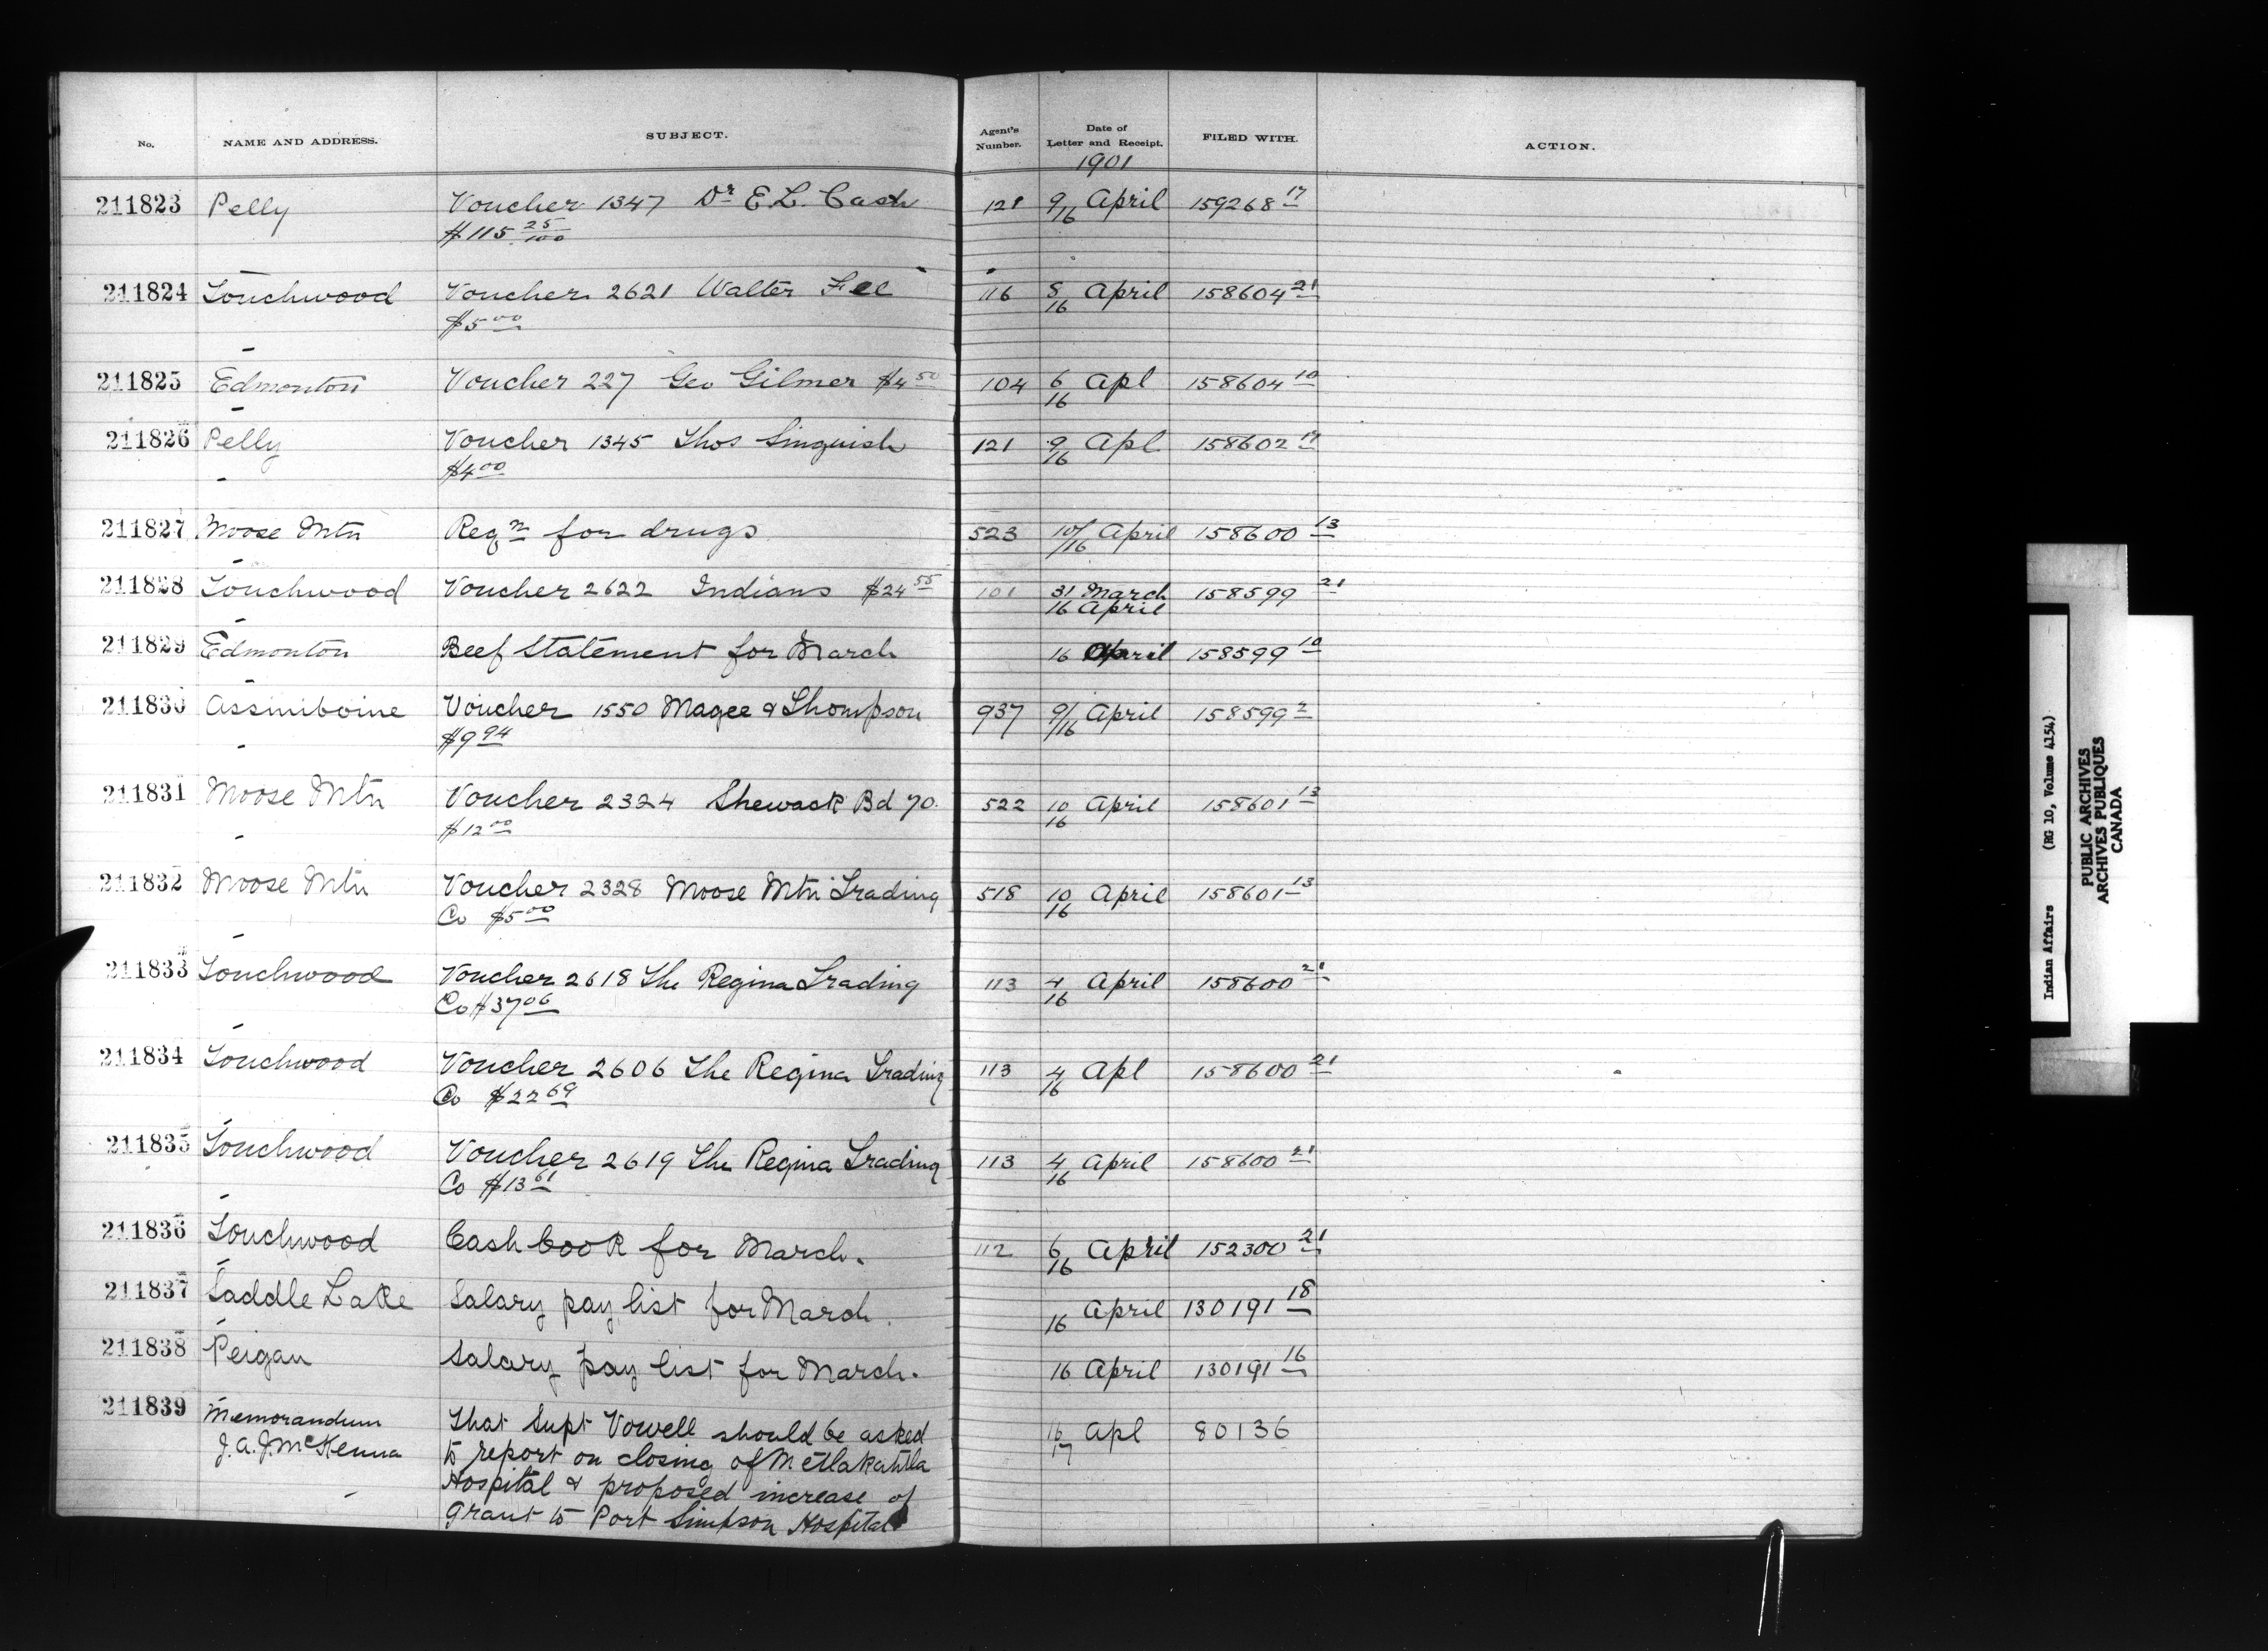 No. NAME AND ADDRESS. SUBJECT. Agent's Number. Date of Letter and Receipt. FILED WITH. ACTION.
1901
211823 Pelly Voucher 1347 Dr E.L. Cash 121 9/16 April 159268 17
$115 25/100
211824 Touchwood Voucher 2621 Walter Fee 116 5/16 April 158604 21
$5 00
211825 Edmonton Voucher 227 Geo Gilmer $4 50 104 6/16 Apl 158604 10
211826 Pelly Voucher 1345 Thos Singuish 121 9/16 Apl 158602 17
$4 00
211827 Moose Mtn Reqn for drugs 523 10/16 April 158600 13
211828 Touchwood Voucher 2622 Indians $24 55 101 31 March 158599 21
16 April
211829 Edmonton Beef Statement for March 16 April 158599 10
211830 Assiniboine Voucher 1550 Magee & Thompson 937 9/16 April 158599 2
$9 94
211831 Moose Mtn Voucher 2324 Shewack Bd 70. 522 10/16 April 158601 13
$12 00
211832 Moose Mtn Voucher 2328 Moose Mtn Trading 518 10/16 April 158601 13
Co $5 00
211833 Touchwood Voucher 2618 The Regina Trading 113 4/16 April 158600 21
Co $37 06
211834 Touchwood Voucher 2606 The Regina Trading 113 4/16 Apl 158600 21
Co $22 69
211835 Touchwood Voucher 2619 The Regina Trading 113 4/16 April 158600 21
Co $13 61
211836 Touchwood Cash book for March. 112 6/16 April 152300 21
211837 Saddle Lake Salary pay list for March. 16 April 130191 18
211838 Peigan Salary pay list for March. 16 April 130191 16
211839 Memorandum That Supt Vowell should be asked 16/17 Apl 80136
J.A.J. McKenna to report on closing of Metlakahtla
Hospital & proposed increase of
Grant to Port Simpson Hospital
Indian Affairs (RG 10, Volume 4154)
PUBLIC ARCHIVES
ARCHIVES PUBLIQUES
CANADA